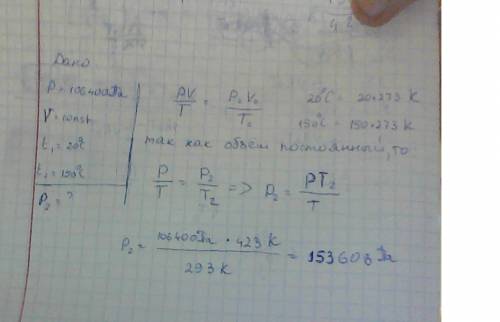 Дано
P = 106400 Па
V = const
t₁ = 20°C
t₁ = 150°C
P₂ = ?
PV/T = P₀V₀/T₀
20°C = 20+273 K
150°C = 150+273 K
так как объем постоянный, то
P/T = P₂/T₂ => P₂ = PT₂/T
P₂ = 106400 Па · 423 K / 293 K = 153608 Па